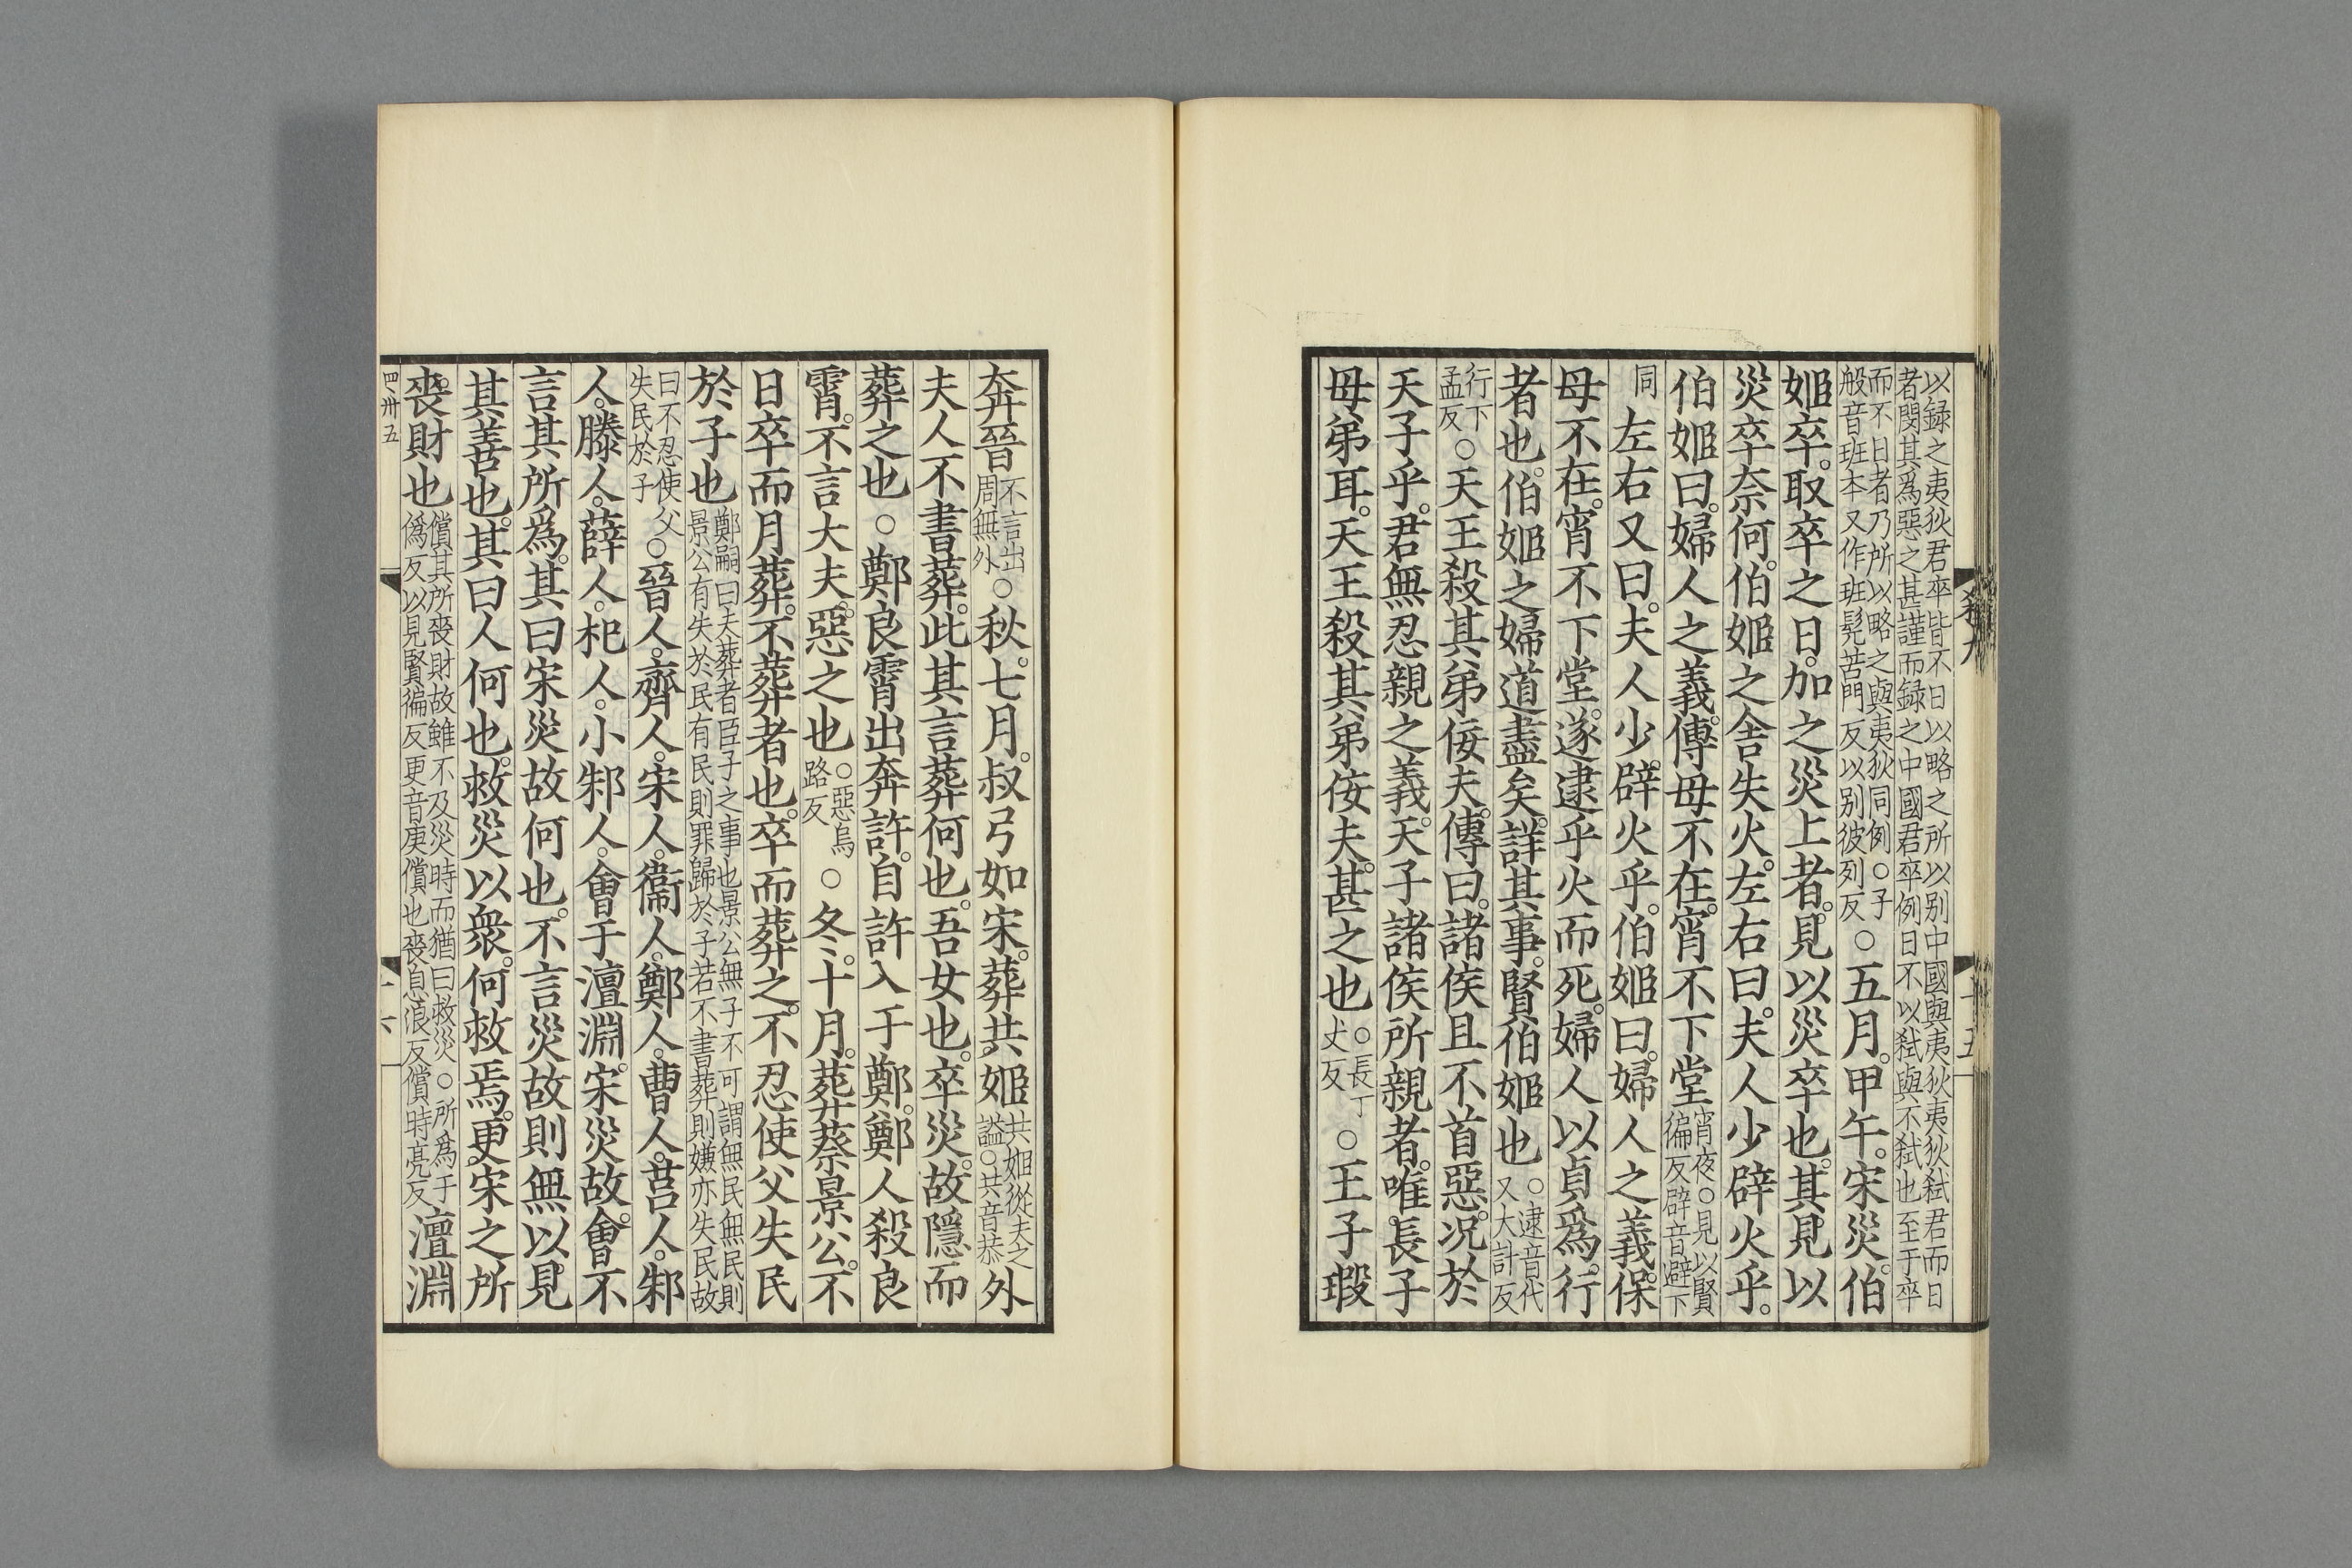 以録之夷狄君卒皆不日以略之所以别中國與夷狄夷狄弑君而日
者閔其爲惡之甚謹而録之中國君卒例日不以弑與不弑也至于卒
而不日者乃所以略之與夷狄同例○子
般音班本又作班髠苦門反以别彼列反
○五月。甲午。宋災。伯
姬卒。取卒之日。加之災上者。見以災卒也。其見以
災卒奈何。伯姬之舍失火。左右曰。夫人少辟火乎。
伯姬曰。婦人之義。傅母不在。宵不下堂
宵夜○見以賢
徧反辟音避下
同
左右又曰。夫人少。辟火乎。伯姬曰。婦人之義。保
母不在。宵不下堂。遂逮乎火而死。婦人以貞爲行
者也。伯姬之婦道盡矣。詳其事。賢伯姬也
○逮音代
又大計反
行下
孟反
○天王殺其弟佞夫。傳曰。諸侯且不首惡。况於
天子乎。君無忍親之義。天子諸侯所親者。唯長子
母弟耳。天王殺其弟佞夫。甚之也
○長丁
丈反
○王子瑕
奔晉
不言出
周無外
○秋。七月。叔弓如宋。葬共姬
共姬從夫之
謚○共音恭
外
夫人不書葬。此其言葬何也。吾女也。卒災。故隱而
葬之也○鄭良霄出奔許。自許入于鄭。鄭人殺良
霄。不言大夫。惡之也
○惡烏
路反
○冬。十月。葬蔡景公。不
日卒而月葬。不葬者也。卒而葬之。不忍使父失民
於子也
鄭嗣曰夫葬者臣子之事也景公無子不可謂無民無民則
景公有失於民有民則罪歸於子若不書葬則嫌亦失民故
曰不忍使父
失民於子
○晉人。齊人。宋人。衞人。鄭人。曹人。莒人。邾
人。滕人。薛人。杞人。小邾人。會于澶淵。宋災故。會不
言其所爲。其曰宋災故何也。不言災故則無以見
其善也。其曰人何也。救災以衆。何救焉。更宋之所
喪財也
償其所喪財故雖不及災時而猶曰救災○所爲于
僞反以見賢徧反更音庚償也喪息浪反償時亮反
澶淵